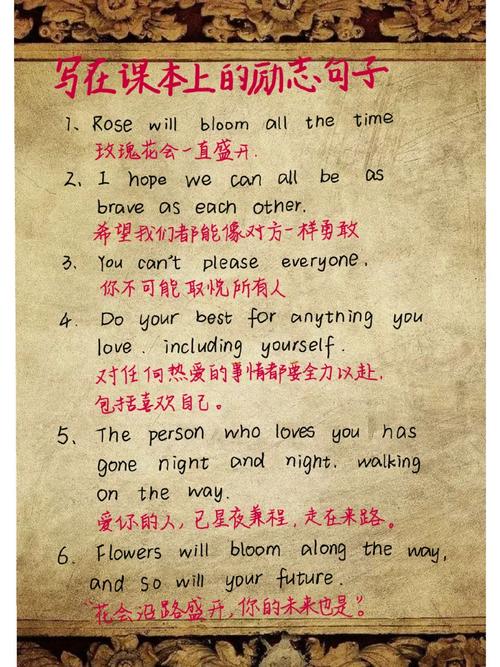 写在课本上的励志句子
1、Rose will bloom all the time
玫瑰花会一直盛开.
2、I hope we can all be as
brave as each other.
希望我们都能像对方一样勇敢
3、You can't please everyone.
你不可能取悦所有人
4、Do your best for anything you
love. including yourself.
对任何热爱的事情都要全力以赴,
包括喜欢自己。
5、The person who loves you has
gone night and night. walking
on the way.
爱你的人,已星夜兼程,走在来路。
6、Flowers will bloom along the way,
and so will your future.
"花会沿路盛开,你的未来也是"。